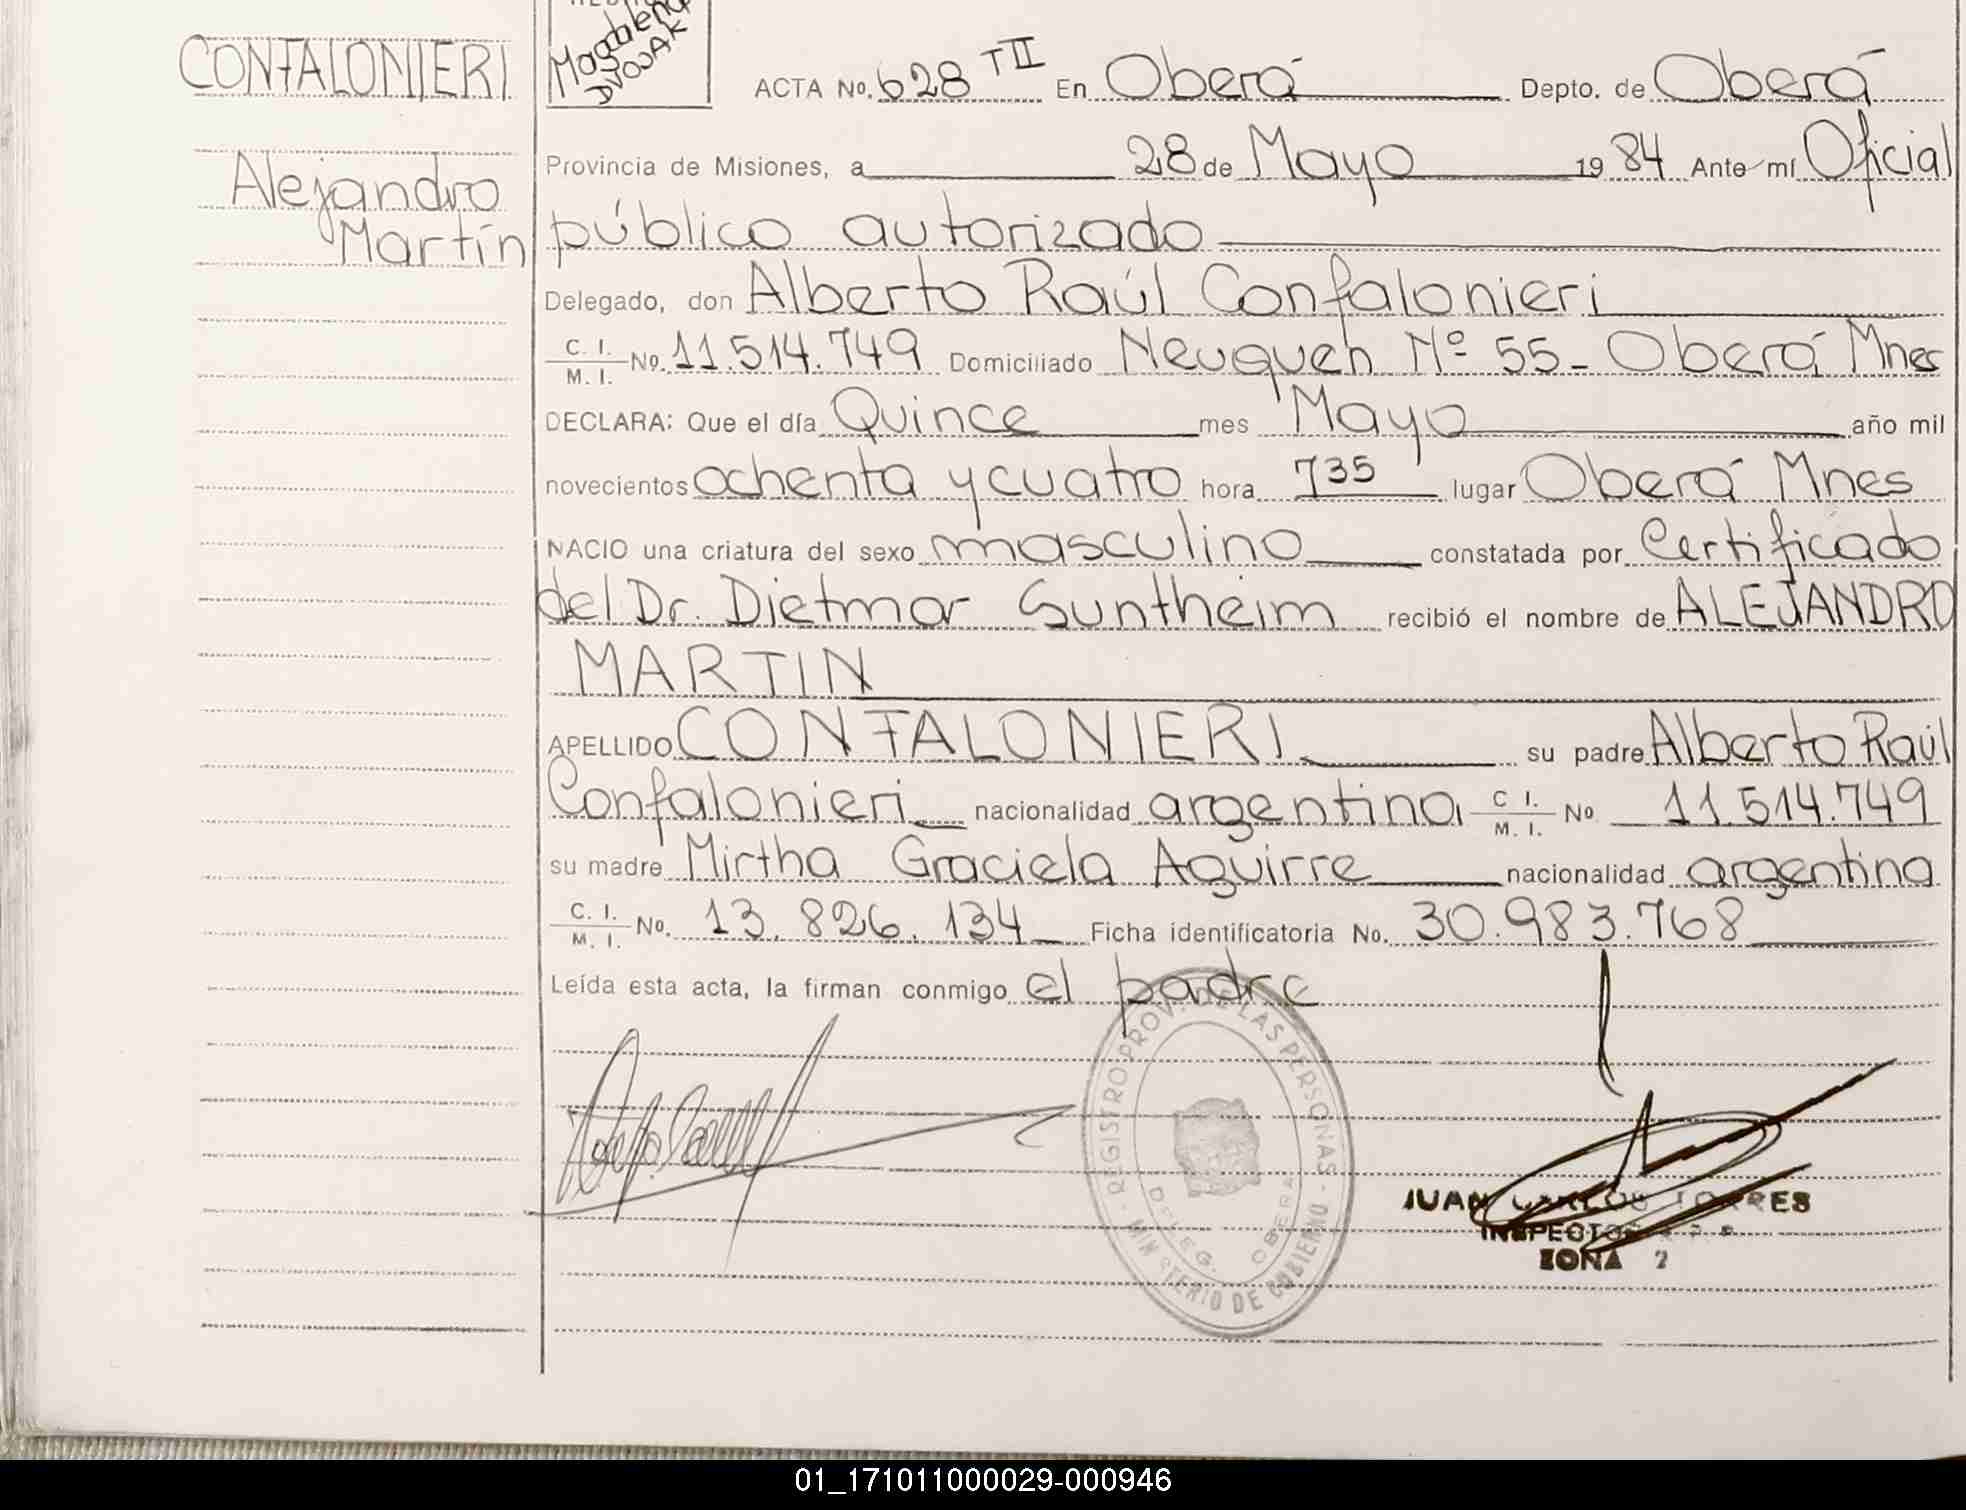 CONFALONIERI
Alejandro
Martín
Magdalena
DVOJAK
ACTA No. 628 TII En Oberá Depto. de Oberá
Provincia de Misiones, a 28 de Mayo 1984 Ante mí Oficial
público autorizado
Delegado, don Alberto Raúl Confalonieri
C. I. / M. I. No. 11.514.749 Domiciliado Neuquen Nº 55 - Oberá Mnes
DECLARA: Que el día Quince mes Mayo año mil
novecientos ochenta y cuatro hora 735 lugar Oberá Mnes
NACIO una criatura del sexo masculino constatada por Certificado
del Dr. Dietmar Suntheim recibió el nombre de ALEJANDRO
MARTIN
APELLIDO CONFALONIERI su padre Alberto Raúl
Confalonieri nacionalidad argentina C I. / M. I. No 11.514.749
su madre Mirtha Graciela Aguirre nacionalidad argentina
C. I. / M. I. No. 13.826.134 Ficha identificatoria No. 30.983.768
Leída esta acta, la firman conmigo el padre
REGISTRO PROV. DE LAS PERSONAS - MINISTERIO DE GOBIERNO -
DELEG. OBERA
JUAN CARLOS TORRES
INSPECTOR
ZONA 2
01_171011000029-000946